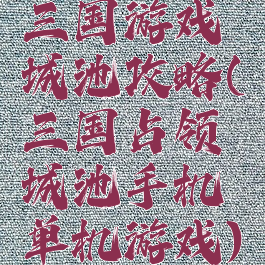 三国游戏
城池攻略(
三国占领
城池手机
单机游戏)